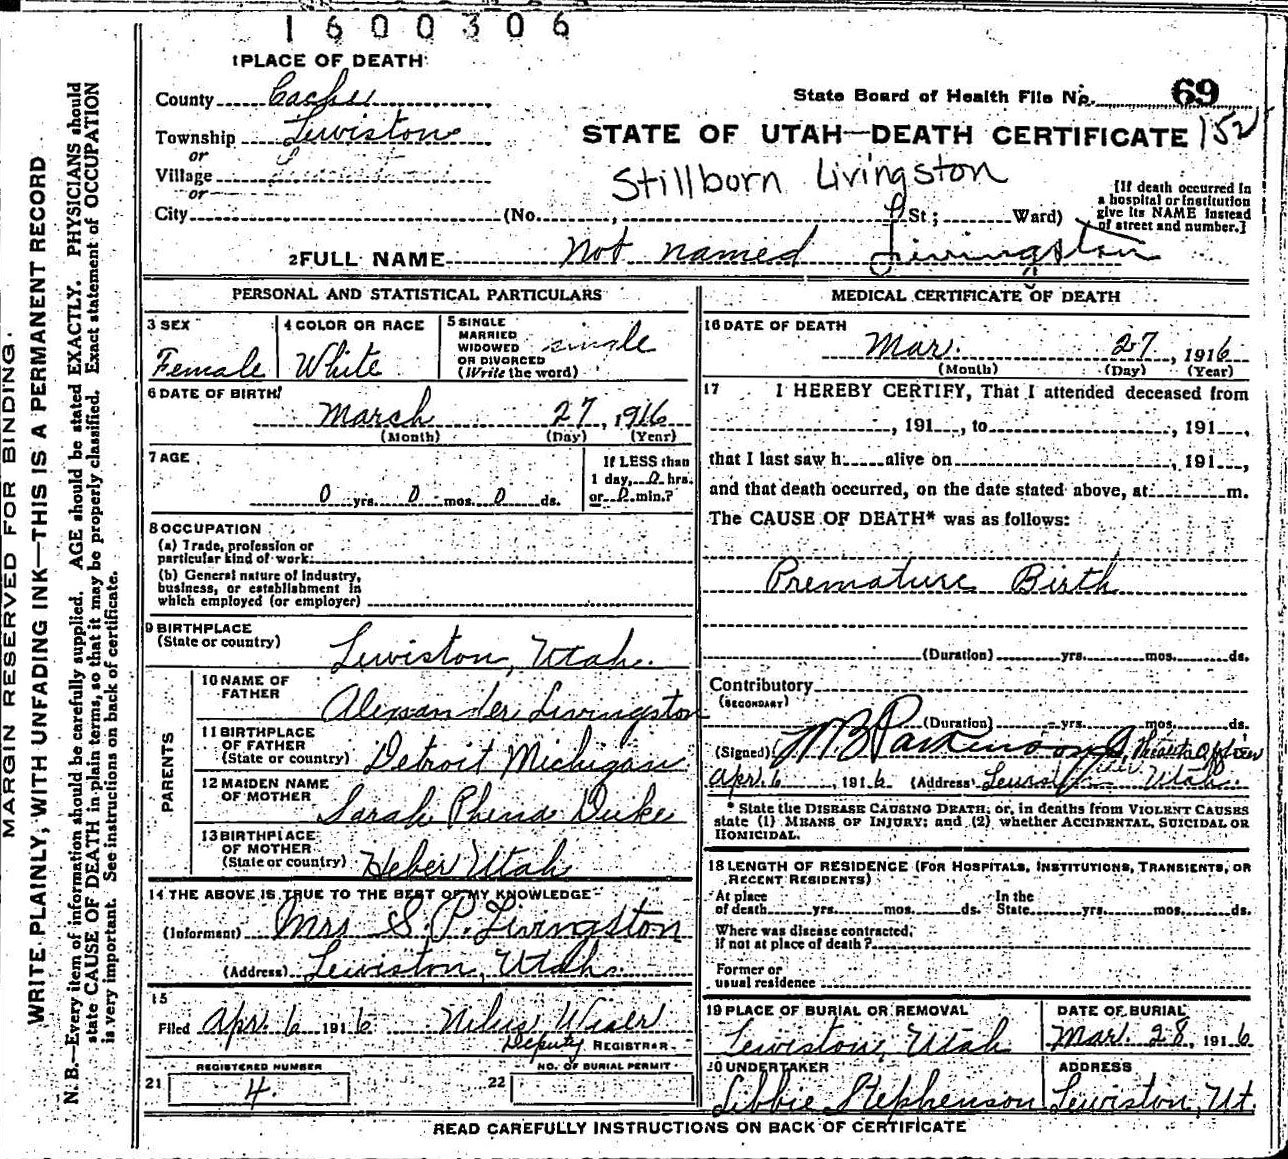 1600306
1 PLACE OF DEATH
County Cache
State Board of Health File No. 69
Township Lewiston
STATE OF UTAH—DEATH CERTIFICATE 152
or
Village
or
Stillborn Livingston
[If death occurred in
a hospital or institution
give its NAME instead
of street and number.]
City (No. , St.; Ward)
2 FULL NAME Not named Livingston
PERSONAL AND STATISTICAL PARTICULARS
3 SEX Female
4 COLOR OR RACE White
5 SINGLE
MARRIED
WIDOWED
OR DIVORCED
(Write the word) single
6 DATE OF BIRTH
March 27, 1916
(Month) (Day) (Year)
7 AGE
0 yrs. 0 mos. 0 ds.
If LESS than
1 day, 0 hrs.
or 0 min.?
8 OCCUPATION
(a) Trade, profession or
particular kind of work
(b) General nature of industry,
business, or establishment in
which employed (or employer)
9 BIRTHPLACE
(State or country) Lewiston, Utah.
PARENTS
10 NAME OF
FATHER Alexander Livingston
11 BIRTHPLACE
OF FATHER
(State or country) Detroit Michigan
12 MAIDEN NAME
OF MOTHER Sarah Phena Duke
13 BIRTHPLACE
OF MOTHER
(State or country) Heber Utah
14 THE ABOVE IS TRUE TO THE BEST OF MY KNOWLEDGE
(Informant) Mrs S. P. Livingston
(Address) Lewiston, Utah.
15
Filed Apr. 6 1916 Nilus Wiser
Deputy REGISTRAR
21 REGISTERED NUMBER
4.
22 NO. OF BURIAL PERMIT
MEDICAL CERTIFICATE OF DEATH
16 DATE OF DEATH
Mar. 27, 1916
(Month) (Day) (Year)
17 I HEREBY CERTIFY, That I attended deceased from
, 191 , to , 191 ,
that I last saw h alive on , 191 ,
and that death occurred, on the date stated above, at m.
The CAUSE OF DEATH* was as follows:
Premature Birth
(Duration) yrs. mos. ds.
Contributory
(SECONDARY)
(Duration) yrs. mos. ds.
(Signed) W B Parkinson Jr, Health Officer
Apr. 6 1916 (Address) Lewiston Utah.
* State the DISEASE CAUSING DEATH; or, in deaths from VIOLENT CAUSES
state (1) MEANS OF INJURY; and (2) whether ACCIDENTAL, SUICIDAL OR
HOMICIDAL.
18 LENGTH OF RESIDENCE (FOR HOSPITALS, INSTITUTIONS, TRANSIENTS, OR
RECENT RESIDENTS)
At place
of death yrs. mos. ds. In the
State yrs. mos. ds.
Where was disease contracted,
if not at place of death?
Former or
usual residence
19 PLACE OF BURIAL OR REMOVAL
Lewiston, Utah
DATE OF BURIAL
Mar. 28, 1916
20 UNDERTAKER
Libbie Stephenson
ADDRESS
Lewiston, Ut.
READ CAREFULLY INSTRUCTIONS ON BACK OF CERTIFICATE
MARGIN RESERVED FOR BINDING.
WRITE PLAINLY, WITH UNFADING INK—THIS IS A PERMANENT RECORD
N. B.—Every item of information should be carefully supplied. AGE should be stated EXACTLY. PHYSICIANS should
state CAUSE OF DEATH in plain terms, so that it may be properly classified. Exact statement of OCCUPATION
is very important. See instructions on back of certificate.